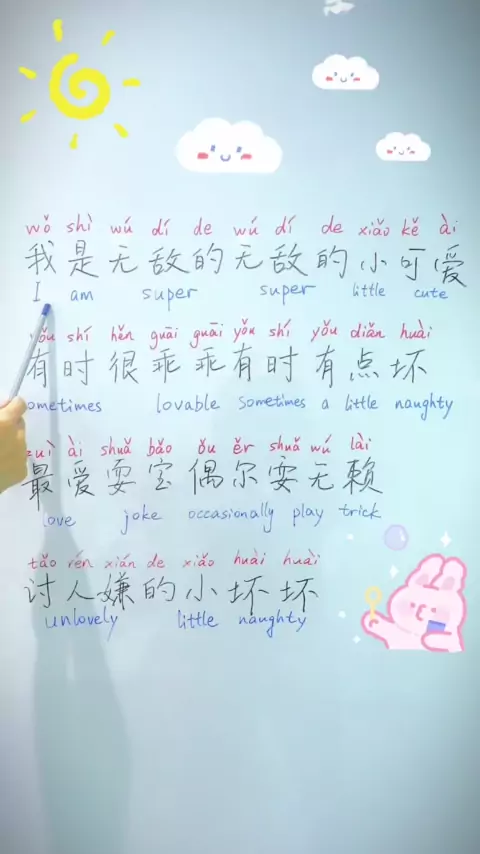 wǒ shì wú dí de wú dí de xiǎo kě ài
我是无敌的无敌的小可爱
I am super super little cute
shí hěn guāi guāi yǒu shí yǒu diǎn huài
有时很乖乖有时有点坏
ometimes lovable Sometimes a little naughty
ài shuǎ bǎo ǒu ěr shuǎ wú lài
最爱耍宝偶尔耍无赖
love joke occasionally play trick
tǎo rén xián de xiǎo huài huài
讨人嫌的小坏坏
unlovely little naughty